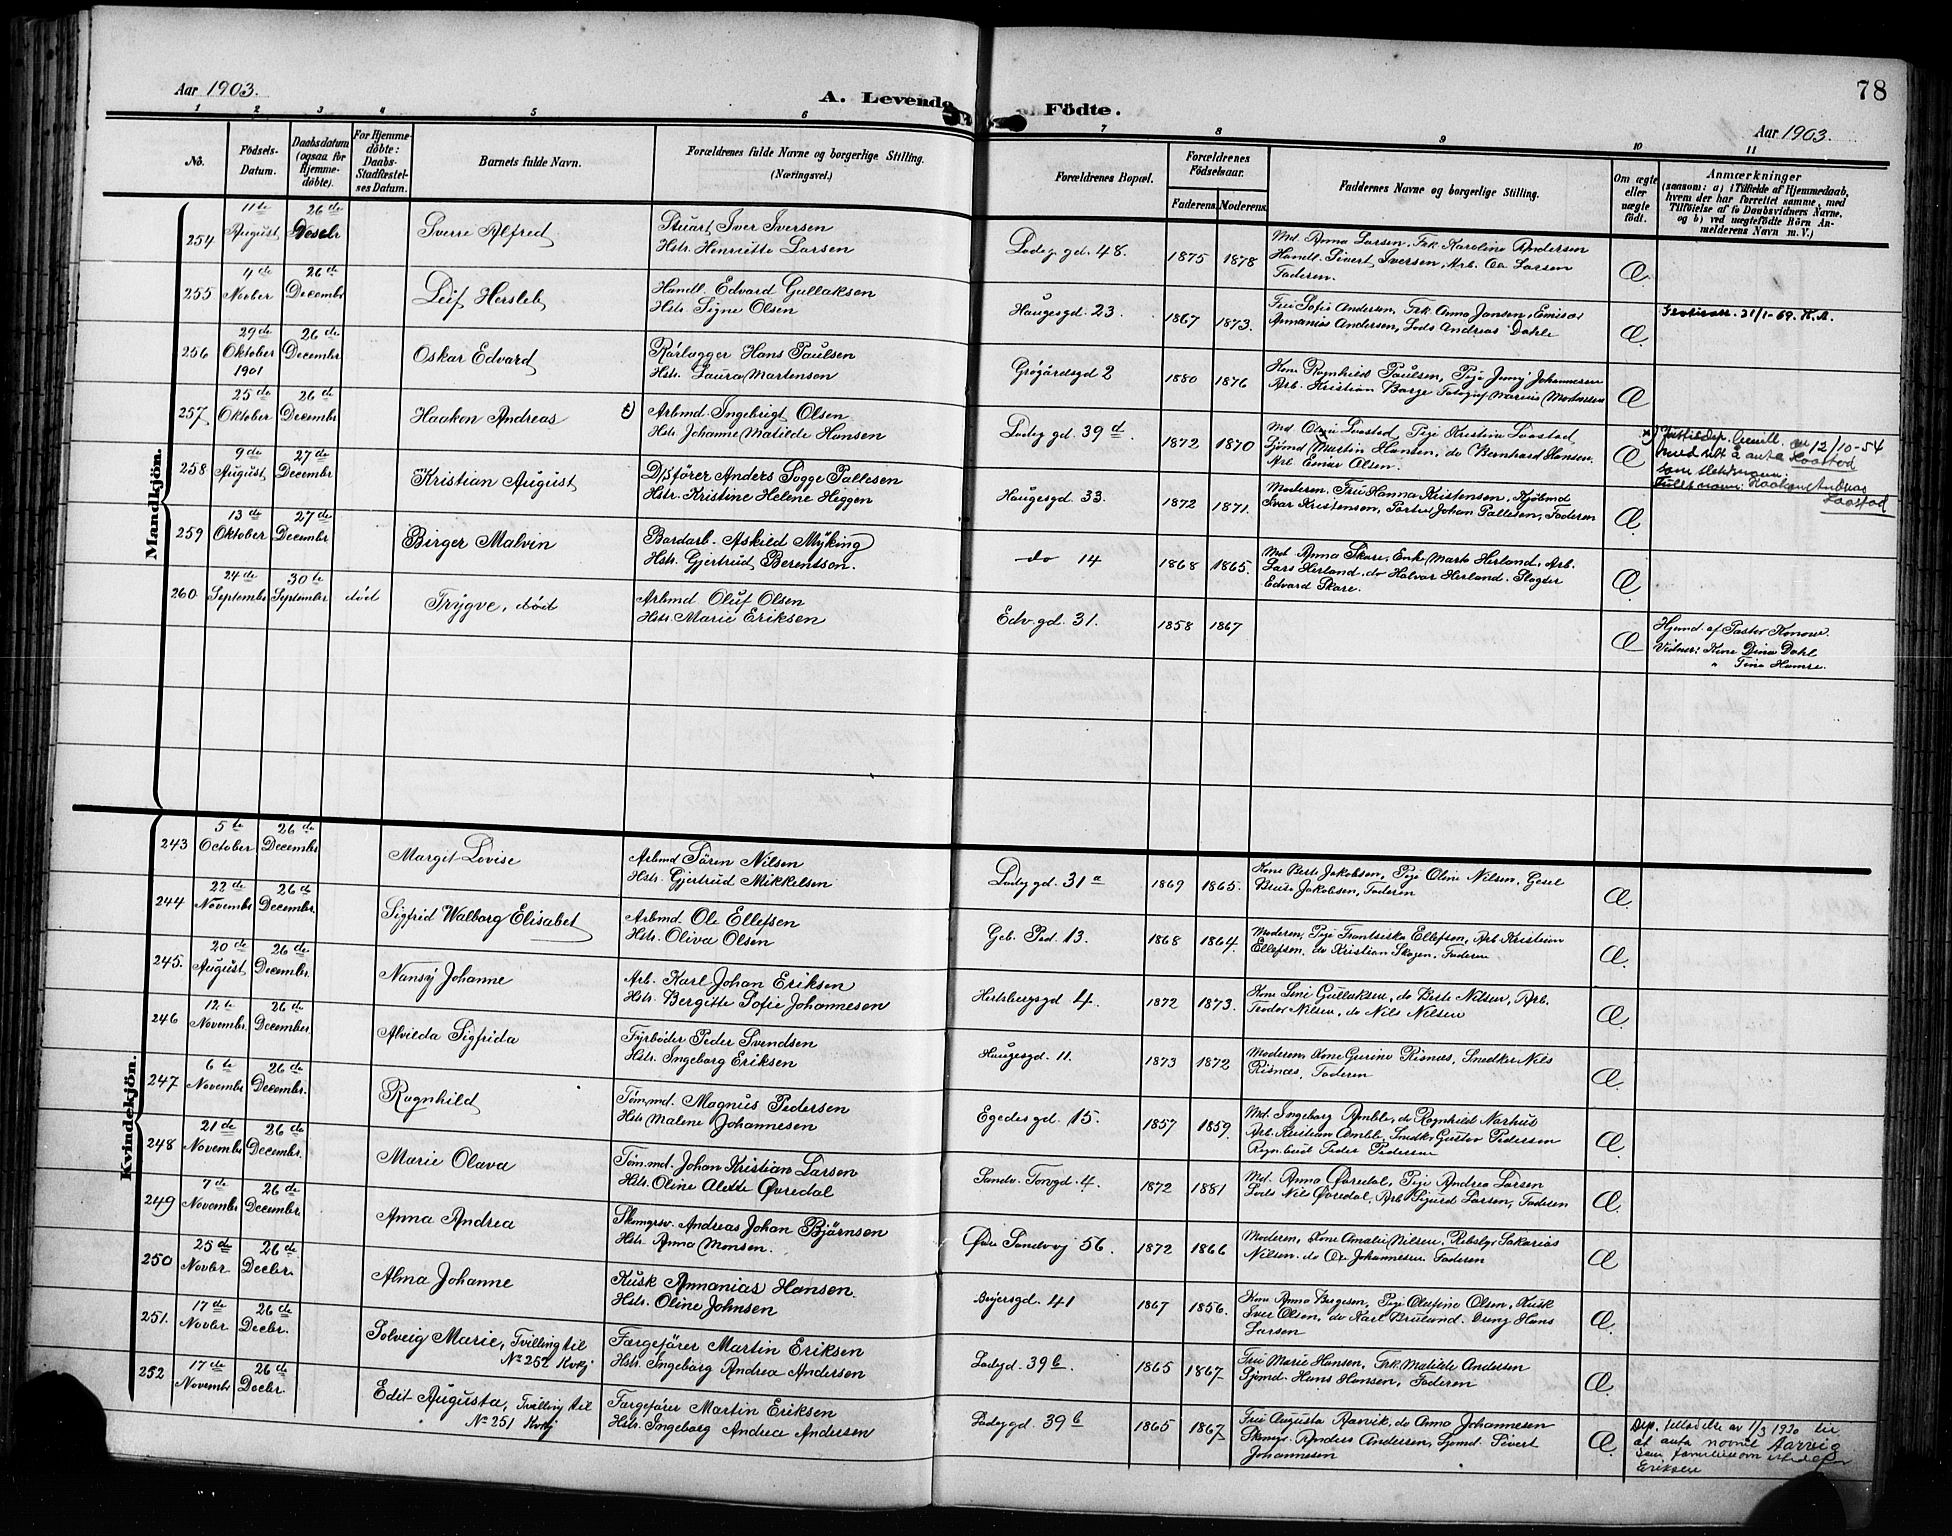 78
Aar 1903.
A. Levende Födte.
Aar 1903.
1 2 3 4 5 6 7 8 9 10 11
No.
Födsels-Datum.
Daabsdatum (ogsaa for Hjemme-döbte).
For Hjemme-döbte: Daabs-Stadfæstel-ses Datum.
Barnets fulde Navn.
Forældrenes fulde Navne og borgerlige Stilling. (Næringsvei.)
Forældrenes Bopæl.
Forældrenes Födselsaar.
Faderens. Moderens.
Faddernes Navne og borgerlige Stilling.
Om ægte eller uægte födt.
Anmærkninger
(saasom: a) i Tilfælde af Hjemmedaab,
hvem der har forrettet samme, med
Tilföielse af to Daabsvidners Navne.
og b) ved uægtefödte Börn An-
melderens Navn m. V.)
Mandkjön.
254 11te August 26de Decebr Sverre Alfred Stuart Iver Iversen
Hstr. Henriette Larsen Ladeg.gd. 48. 1875 1878 Md. Anna Larsen, Frk. Karoline Andersen
Handl. Sivert Iversen, Arb. Ole Larsen
Faderen. Æ
255 4de Novber 26de Decembr Leif Hersleb Handl. Edvard Gullaksen
Hstr. Signe Olsen Haugesgd. 23. 1867 1873. Fru Sofie Andersen, Frk. Anna Jansen, Emissær
Annanias Andersen, Lods Andreas Dahle Æ 21/1-69. K.A.
256 29de Oktober 1901 26de Decembr Oskar Edvard Rörlægger Hans Paulsen
Hstr. Laura Martensen Grøgårdsgd 2 1880 1876 Kone Ragnhild Paulsen, Pige Jenny Johannesen
Arb. Kristian Borge Fotograf Marius Mortensen Æ
257 25de Oktober 26de Decembr Haakon Andreas Arbmd. Ingebrigt Olsen
Hstr. Johanne Matilde Hansen Ladeg.gd. 39d. 1872 1870 Md. Oline Loostad, Pige Kristine Loostad
Sjömd Martin Hansen, do Bernhard Hansen.
Arb. Einar Olsen. Æ x) Justisdep. bevill. av 12/10-54
med rett å anta Laastad
som slektsnavn.
Fullt navn: Haakon Andreas
Laastad
258 9de August 27de Decembr Kristian August D/sförer Anders Sogge Pallesen
Hstr. Kristine Helene Heggen Haugesgd. 33. 1872 1871. Moderen, Fru Hanna Kristensen, Kjöbmd
Ivar Kristensen, Johan Pallesen, Faderen Æ
259 13de Oktober 27de Decembr Birger Malvin Bordarb. Askild Myking
Hstr. Gjertrud Berentsen. do 14 1868 1865. Md. Anna Skare, Enke Marta Herland, Arb.
Lars Herland, do Halvar Herland. Slagter
Edvard Skare. Æ
260 24de September 30te September död Trygve, död Arbmd Oluf Olsen
Hstr. Marie Eriksen Edv.gd. 31. 1858 1867 Æ Hjemd. af Pastor Konow.
Vidner: Kone Dina Dahl
" Tina Hamre.
Kvindekjön.
243 5te October 26de Decembr Margit Lovise Arbmd Sören Nilsen
Hstr. Gjertrud Mikkelsen Ladeggd. 31a 1869 1865. Kone Berte Jakobsen, Pige Oline Nilsen, Gesel
Jakobsen, Faderen Æ.
244 22de Novembr 26de Decembr. Sigfrid Walborg Elisabet Arbmd. Ole Ellefsen
Hstr. Oliva Olsen Geb. Ped. 13. 1868 1864. Moderen, Pige Frantsiska Ellefsen, Arb. Kristian
Ellefsen, do Kristian Skogen, Faderen Æ.
245. 20de August 26de Decembr. Nansy Johanne Arb. Karl Johan Eriksen
Hstr. Bergitte Sofie Johannesen Hertsbergsgd 4. 1872 1873. Kone Sene Gullaksen, do Berte Nilsen, Arb.
Teodor Nilsen, do Nils Nilsen Æ.
246 12te Novembr. 26de Decembr. Alvilda Sigfrida Fyrböder Peder Svendsen
Hstr. Ingeborg Eriksen Haugesgd. 11. 1873 1872 Moderen, Kone Gurine Risnæs, Snedker Nils
Risnæs, Faderen Æ.
247 6te Novembr 26de Decembr. Ragnhild Töm.md. Magnus Pedersen
Hstr. Malene Johannesen Egedesgd. 15. 1857 1859. Md. Ingeborg Amble, do Ragnhild Narhus
Arb. Kristian Amble, Snedk. Gustav Pedersen
Peder Pedersen Æ.
248 21de Novembr 26de Decembr. Marie Olava Töm.md. Johan Kristian Larsen
Hstr. Oline Alette Øvredal Sandv. Torvgd. 4. 1872 1881 Md. Anna Øvredal, Pige Andrea Larsen
Lods Nils Øvredal, Arb. Sigurd Larsen, Faderen Æ.
249 7de Novembr 26de Decembr. Anna Andrea Skomgrsv. Andreas Johan Björnsen
Hstr. Anna Monsen. Øvre Sandvvj 56. 1872 1866 Moderen, Kone Amalie Nilsen, Rebslgr Sakarias
Nilsen. do Ole Johannesen Faderen Æ
250 25de Novbr 26de Decbr. Alma Johanne Kusk Annanias Hansen.
Hstr. Oline Johnsen 41 1867 1856. Kone Anna Birgesen, Pige Olufine Olsen, Kusk
Iver Olsen, do Karl Bruland. Dreng Hans
Larsen Æ.
251. 17de Novbr 26de Decbr. Solveig Marie, Tvilling til
No 252 Kvkj Færgefører Martin Eriksen
Hstr. Ingeborg Andrea Andersen Ladegd. 39b. 1865 1867 Fru Marie Hansen, Frk. Matilde Andersen
Sjömd. Hans Hansen, Faderen Æ.
252 17de Novembr 26de Decbr. Edit Augusta, Tvilling til
No 251 Kvkj Færgefører Martin Eriksen
Hstr. Ingeborg Andrea Andersen Ladeggd 39b 1865 1867 Fru Augusta Aarvik, do Anna Johannesen
Skomgr. Anders Andersen, Sjömd. Sivert
Johannesen Æ. Dep. tilladelse av 1/3 1920 til
at anta navnet Aarvig
som familienavn istedetfor
Eriksen